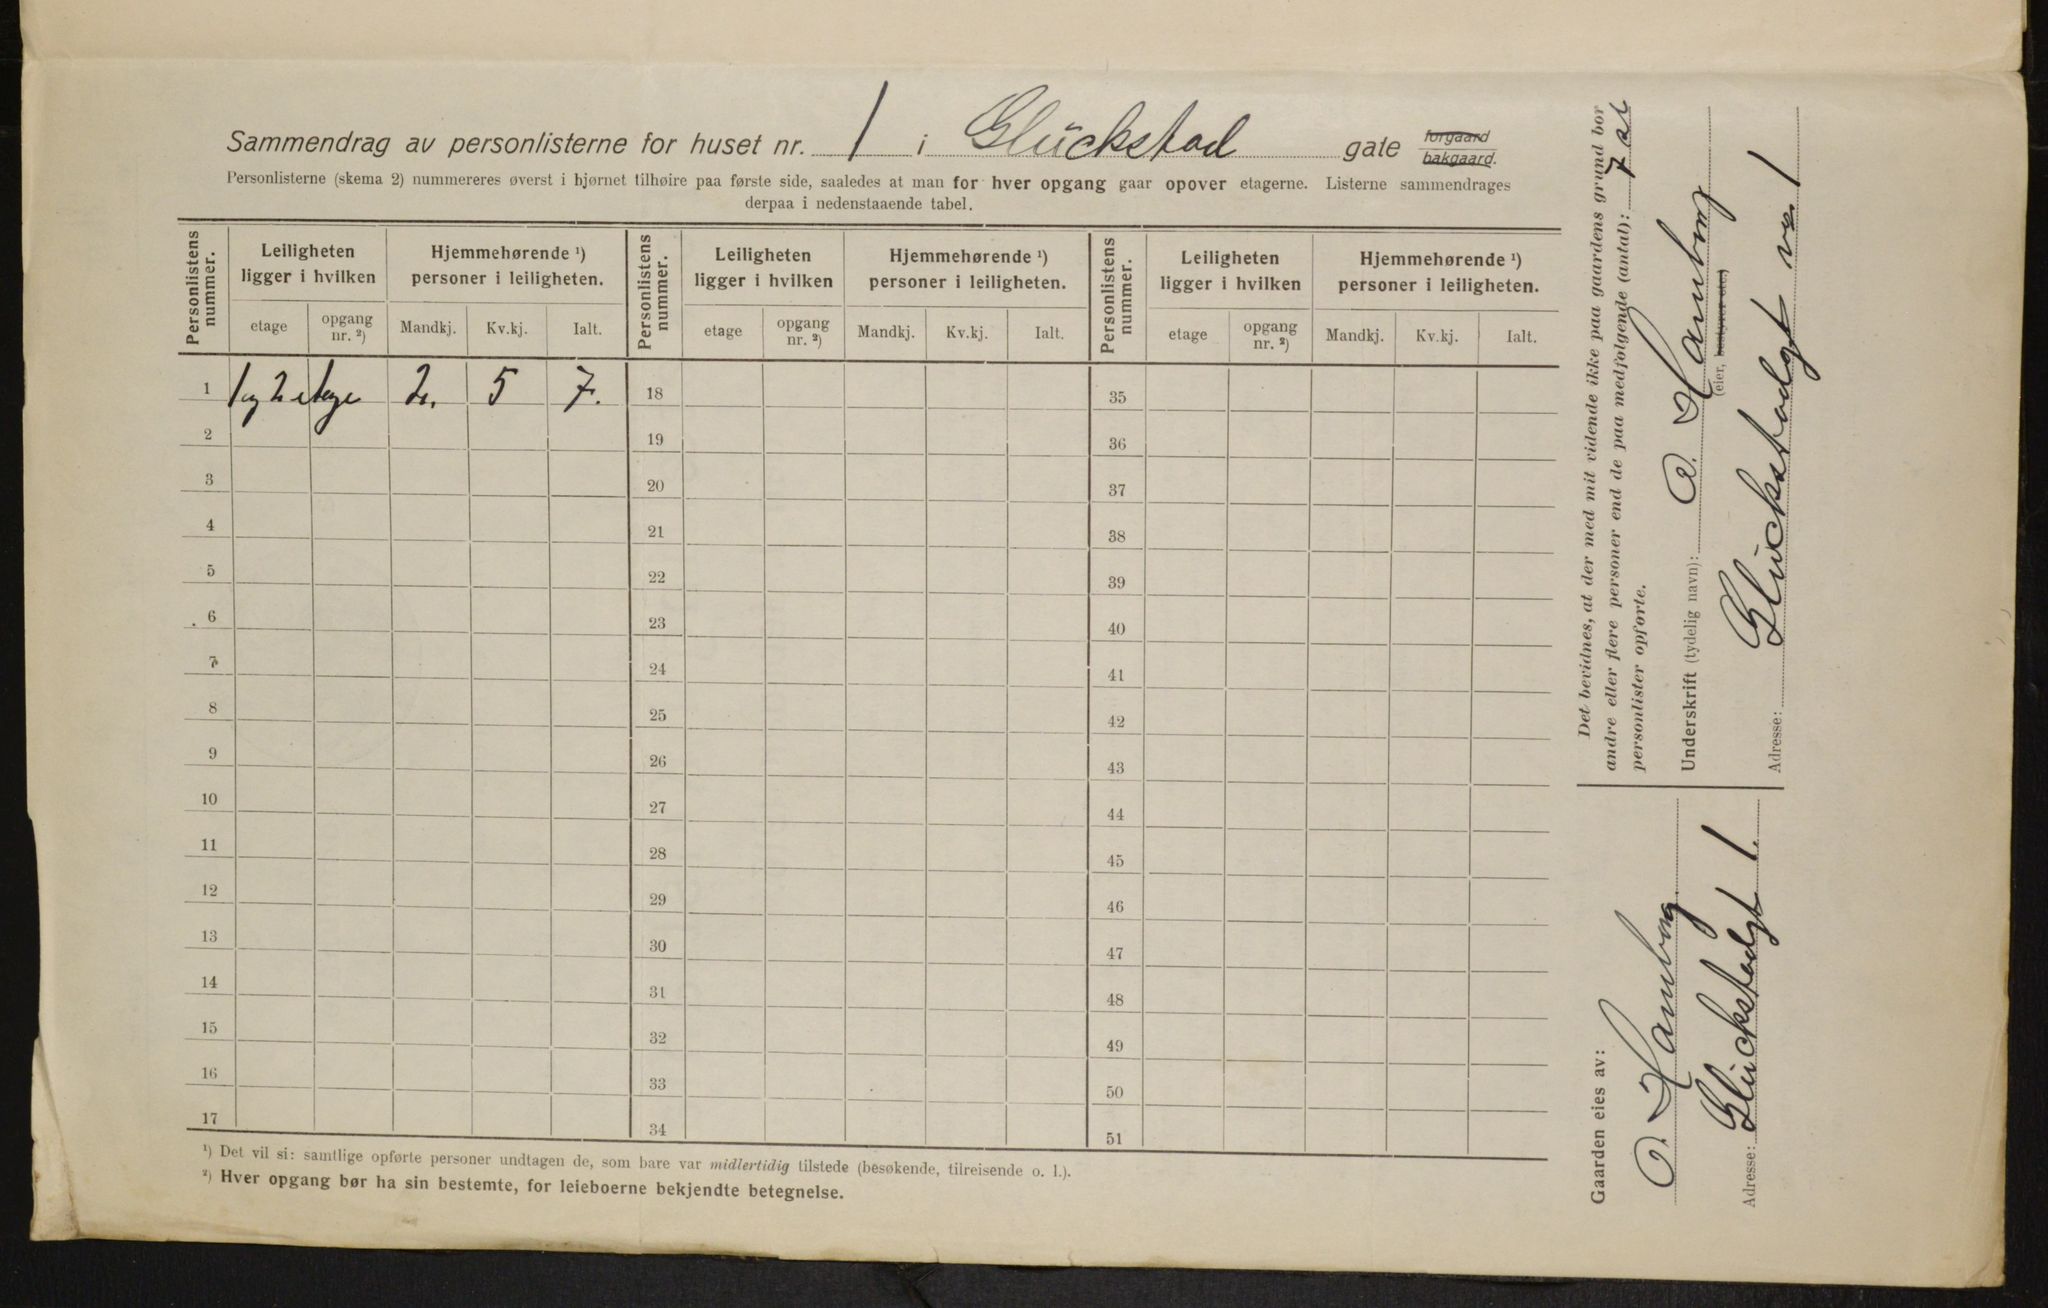 Sammendrag av personlisterne for huset nr. 1 i Glückstad gate forgaard bakgaard.
Personlisterne (skema 2) nummereres øverst i hjørnet tilhøire paa første side, saaledes at man for hver opgang gaar opover etagerne. Listerne sammendrages
derpaa i nedenstaaende tabel.
Personlistens nummer. Leiligheten ligger i hvilken Hjemmehørende ¹) personer i leiligheten. Personlistens nummer. Leiligheten ligger i hvilken Hjemmehørende ¹) personer i leiligheten. Personlistens nummer. Leiligheten ligger i hvilken Hjemmehørende ¹) personer i leiligheten.
etage opgang nr. ²) Mandkj. Kv.kj. Ialt. etage opgang nr. ²) Mandkj. Kv.kj. Ialt. etage opgang nr. ²) Mandkj. Kv.kj. Ialt.
1 1 og 2 etage 2. 5 7. 18 35
2 19 36
3 20 37
4 21 38
5 22 39
6 23 40
7 24 41
8 25 42
9 26 43
10 27 44
11 28 45
12 29 46
13 30 47
14 31 48
15 32 49
16 33 50
17 34 51
¹) Det vil si: samtlige opførte personer undtagen de, som bare var midlertidig tilstede (besøkende, tilreisende o. l.).
²) Hver opgang bør ha sin bestemte, for leieboerne bekjendte betegnelse.
Det bevidnes, at der med mit vidende ikke paa gaardens grund bor
andre eller flere personer end de paa medfølgende (antal): 7
personlister opførte.
Underskrift (tydelig navn): O. Hamborg
(eier, bestyrer etc.)
Adresse: Glückstadgt no. 1
Gaarden eies av:
O. Hamborg
Adresse: Glückstadgt 1.